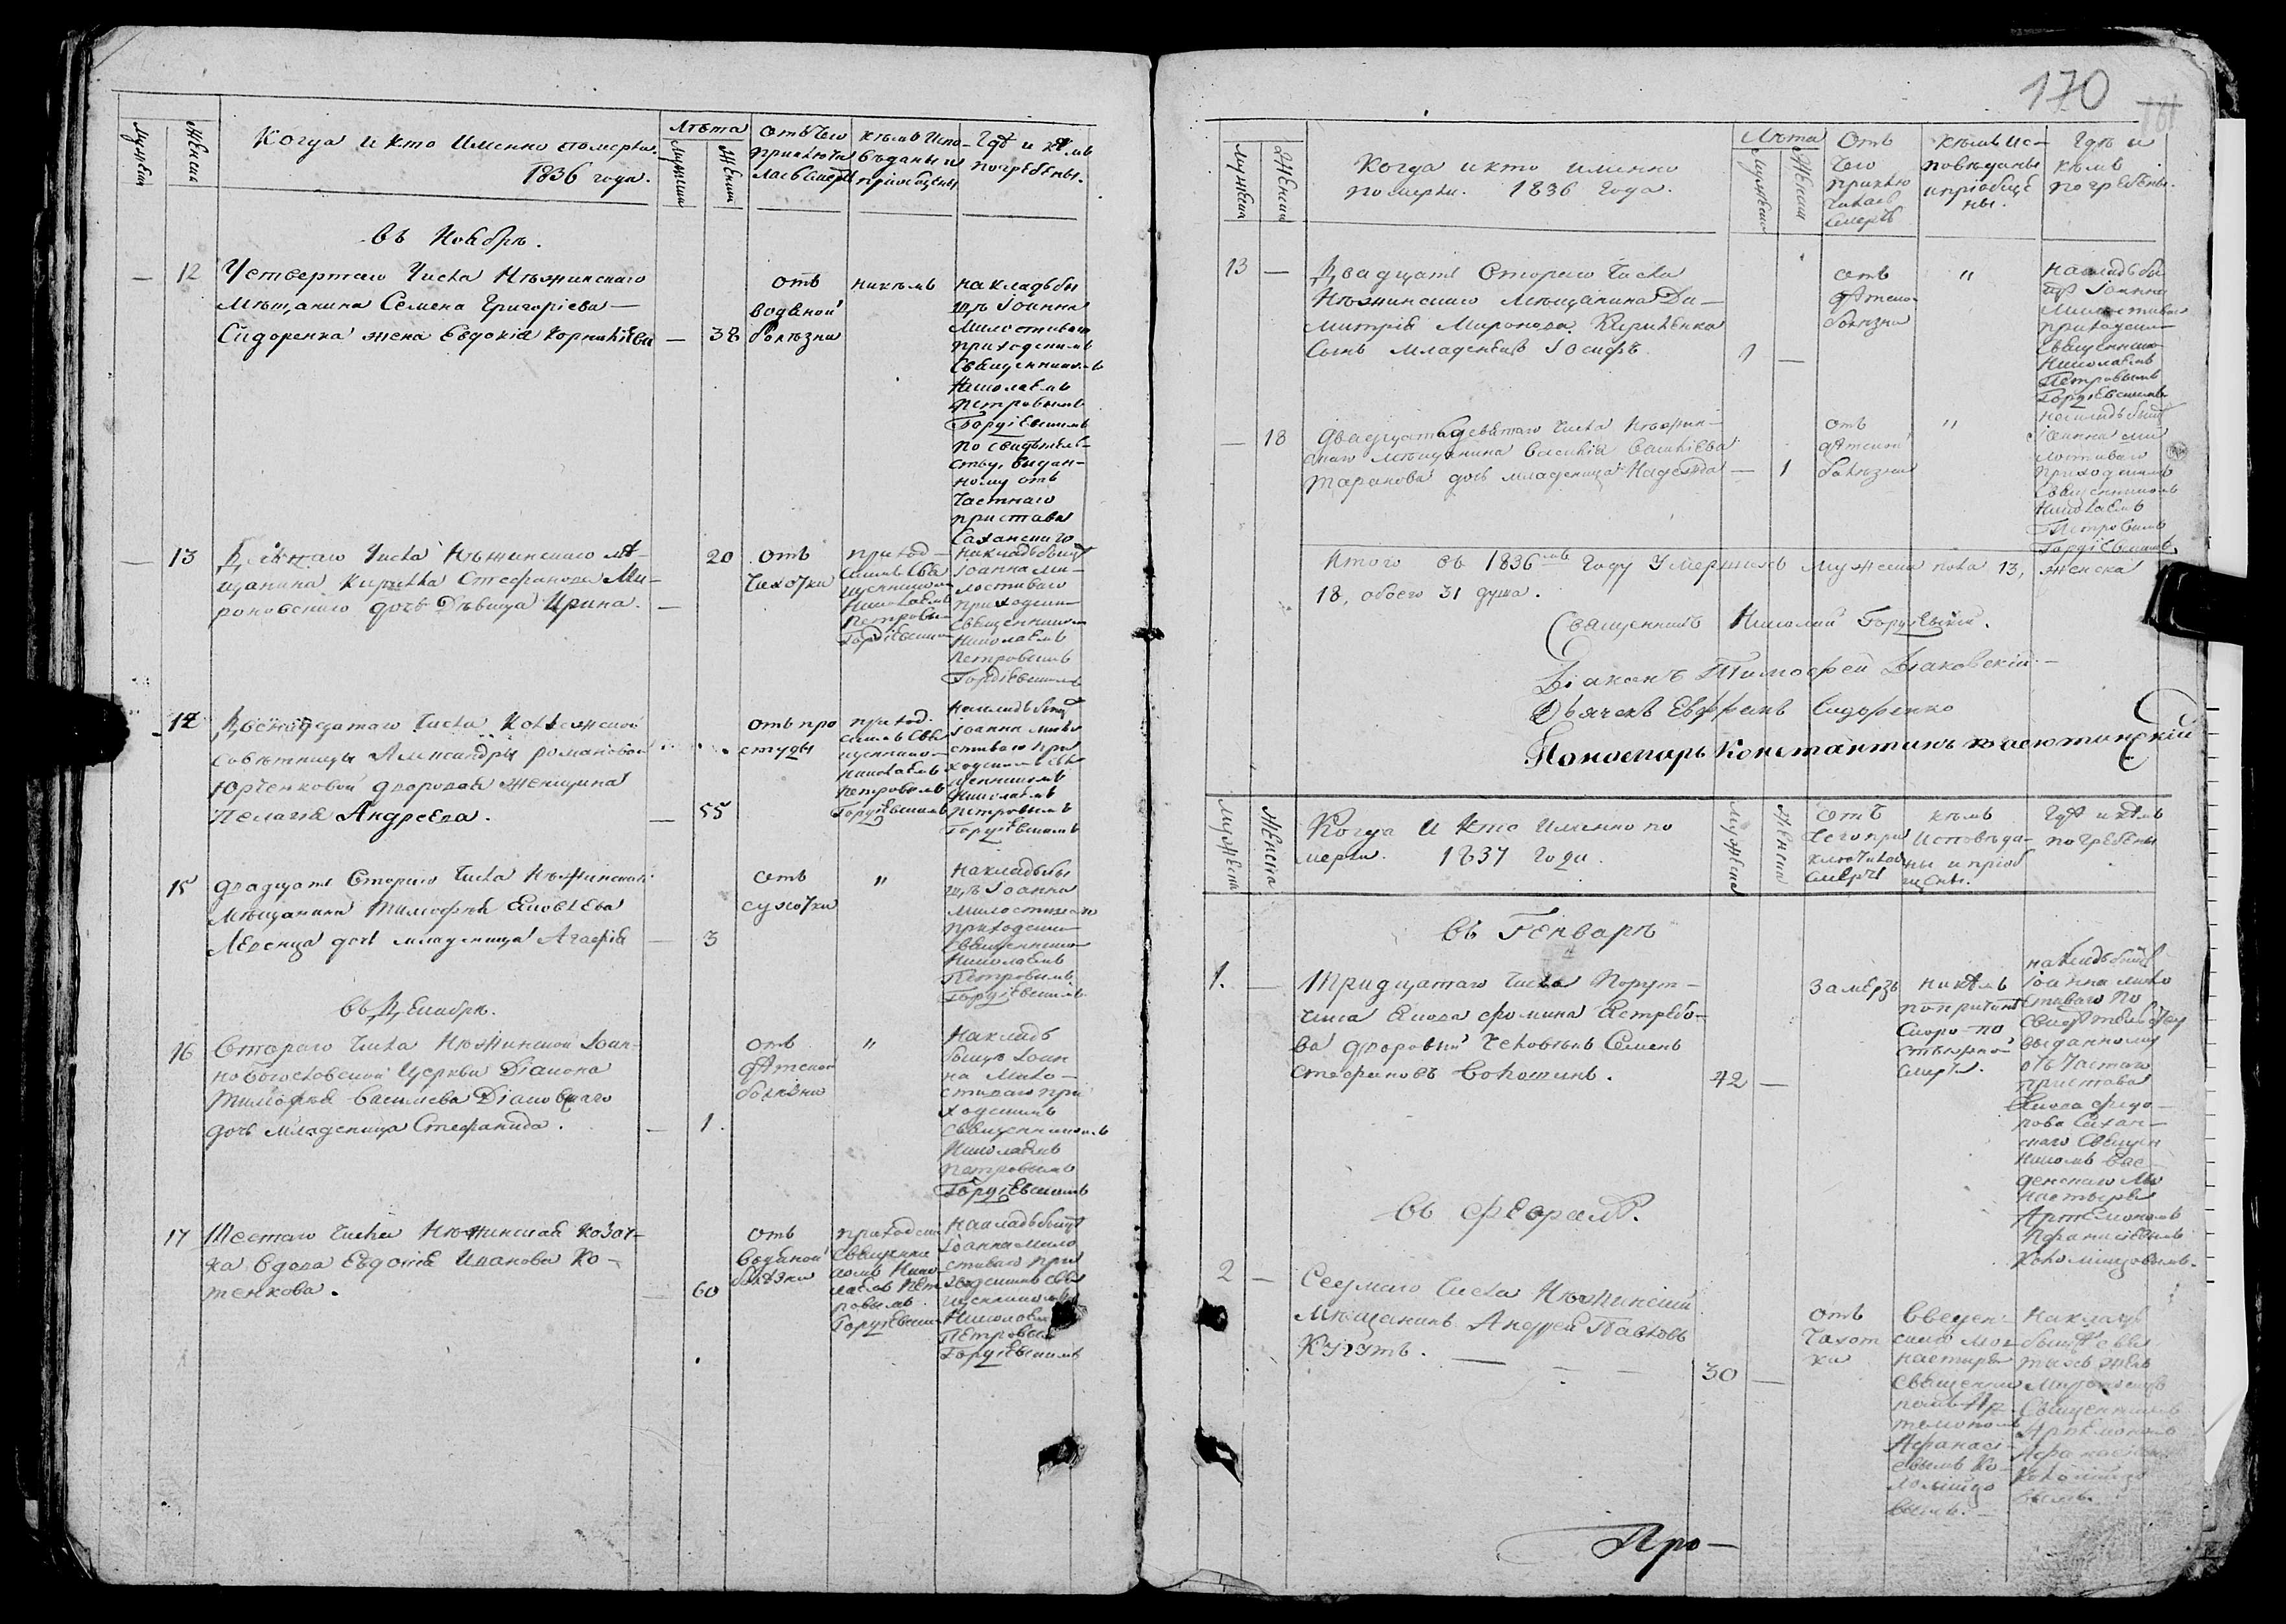 Мужеска
Женска
Когда и кто именно померли.
1836 года.
Лѣта
Мужеска
Женска
отъ чего
приключи
лась смерть
кѣмъ испо-
вѣданы и
пріобщены
Гдѣ и кѣмъ
погребены.
въ Ноябрѣ.
— 12
Четвертаго числа Нѣжинскаго
Мѣщанина Семена Григоріева
Сидоренка жена Евдокія Корнилiева — 38
отъ
водяной
болѣзни
никѣмъ
на кладьбы
щѣ Іоанна
Милостиваго
приходскимъ
Священникомъ
Николаемъ
Петровымъ
Гордіевскимъ
по свидѣтель-
ству, выдан-
ному отъ
Частнаго
пристава
Саханскаго
— 13
Десятаго числа Нѣжинскаго мѣ-
щанина Кирилла Стефанова Ми-
роновскаго дочь Дѣвица Ирина. — 20
отъ
чахотки
приход-
скимъ Свя
щенникомъ
Николаемъ
Петровы-
Гордіевским
на кладьбищѣ
Іоанна Ми-
лостиваго
приходским
Священником
Николаемъ
Петровымъ
Гордіевскимъ
14
Двенадцатаго числа Коллежской
Совѣтницы Александры Романовой
Юрченковой дворовая женщина
Пелагія Андреева. — 55
отъ про
студы
приход-
скимъ Свя
щеннико-
Николаемъ
Петровымъ
Гордіевскимъ
на кладьбищѣ
Іоанна Мило
стиваго при
ходскимъ Свя
щенникомъ
Николаемъ
Петровымъ
Гордіевскимъ
15
двадцать втораго числа Нѣжинскаго
Мѣщанина Тимофея Яковлева
дочь младеница Агафія — 3
отъ
сухотки
"
на кладьбы
щѣ Іоанна
Милостиваго
приходским
Священником
Николаемъ
Петровымъ
Гордіевскимъ
въ Декабрѣ.
16
Втораго числа Нѣжинской Іоан-
нобогословской Церкви Діакона
Тимофея Васильева Діаковскаго
дочь младеница Стефанида. — 1.
отъ
дѣтской
болѣзни
"
На кладь
бищѣ Іоан
на Мило-
стиваго при
ходскимъ
Священникомъ
Николаемъ
Петровымъ
Гордіевскимъ
17
Шестаго числа Нѣжинская козач-
ка вдова Евдокія Иванова Ко-
тенкова. — 60
отъ
водяной
болѣзни
приходским
Священни
комъ Нико
лаемъ Пет
ровымъ
Гордіевским
На кладьбищѣ
Іоанна Мило
стиваго при
ходскимъ Свя
щенникомъ
Николаем
Петровым
Гордіевскимъ
170
Мужеска
Женска
Когда и кто именно
померли. 1836 года.
Лѣта
Мужеска
Женска
Отъ
чего
приклю
чилась
смерть
кѣмъ ис-
повѣданы
и пріобще
ны.
Гдѣ и
кѣмъ
погребены.
13 —
Двадцать втораго числа
Нѣжинскаго Мѣщанина Ди-
митрія Миронова Кириленка
Сынъ младенецъ Іосифъ. 1 —
отъ
дѣтско-
болѣзни
"
На кладьбы
щѣ Іоанна
Милостиваго
приходским
Священником
Николаемъ
Петровымъ
Гордіевскимъ
— 18
Двадцатьдевятаго числа Нѣжин-
скаго Мѣщанина Василія
Таранова дочь младеница Надежда — 1
отъ
дѣтской
болѣзни
"
на кладьбищѣ
Іоанна Ми
лостиваго
приходскимъ
Священникомъ
Николаемъ
Петровымъ
Гордіевскимъ
Итого въ 1836мъ Году умершихъ мужеска пола 13, женска
18, обоего 31 душа.
Священникъ Николай Гордіевскій.
Діаконъ Тимофей Діаковскій
Дьячекъ Сидоренко
Пономарь Константинъ
Мужеска
Женска
Когда и кто именно по
мерли. 1837 года.
Мужеска
Женска
отъ
чего при
ключилась
смерть
кѣмъ
исповѣда-
ны и пріоб
щены.
Гдѣ и кѣмъ
погребены
въ Генварѣ
1. —
Тридцатаго числа Порут-
чика Якова Фомина Ястребо-
ва дворовый человѣкъ Семенъ
Стефановъ Волошинъ. 42 —
Замерзъ
никѣмъ
по причинѣ
скоро-по
стыжной
смерти.
на кладьбищѣ
Іоанна мило
стиваго по
свидѣтельству
выданному
отъ Частнаго
пристава
Якова Федо-
рова Сахан-
скаго Священ
никомъ Вве-
денскаго Мо
настыря
Артемономъ
Афанасіевымъ
Коломійцовымъ.
въ Февралѣ.
2 —
Седмаго числа Нѣжинскій
Мѣщанинъ Андрей Павловъ
Кугутъ. — 30 —
отъ
чахот
ки
Введен-
скаго Мо-
настыря
Священни
комъ Ар
темономъ
Афанасі-
евымъ Ко-
ломійцо
вымъ.
На кладь
бищѣ Свя
тыхъ Женъ
Мироносицъ
Священникомъ
Артемономъ
Афанасіевым
Коломійцо
вымъ.
Про—